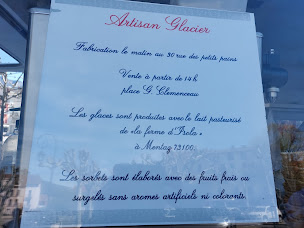 Artisan Glacier
Fabrication le matin au 30 rue des petits pains
Vente à partir de 14h
place G. Clemenceau
Les glaces sont produites avec le lait pasteurisé
de «la ferme d'Isola»
à Montag 73100
Les sorbets sont élaborés avec des fruits frais ou
surgelés sans arômes artificiels ni colorants.